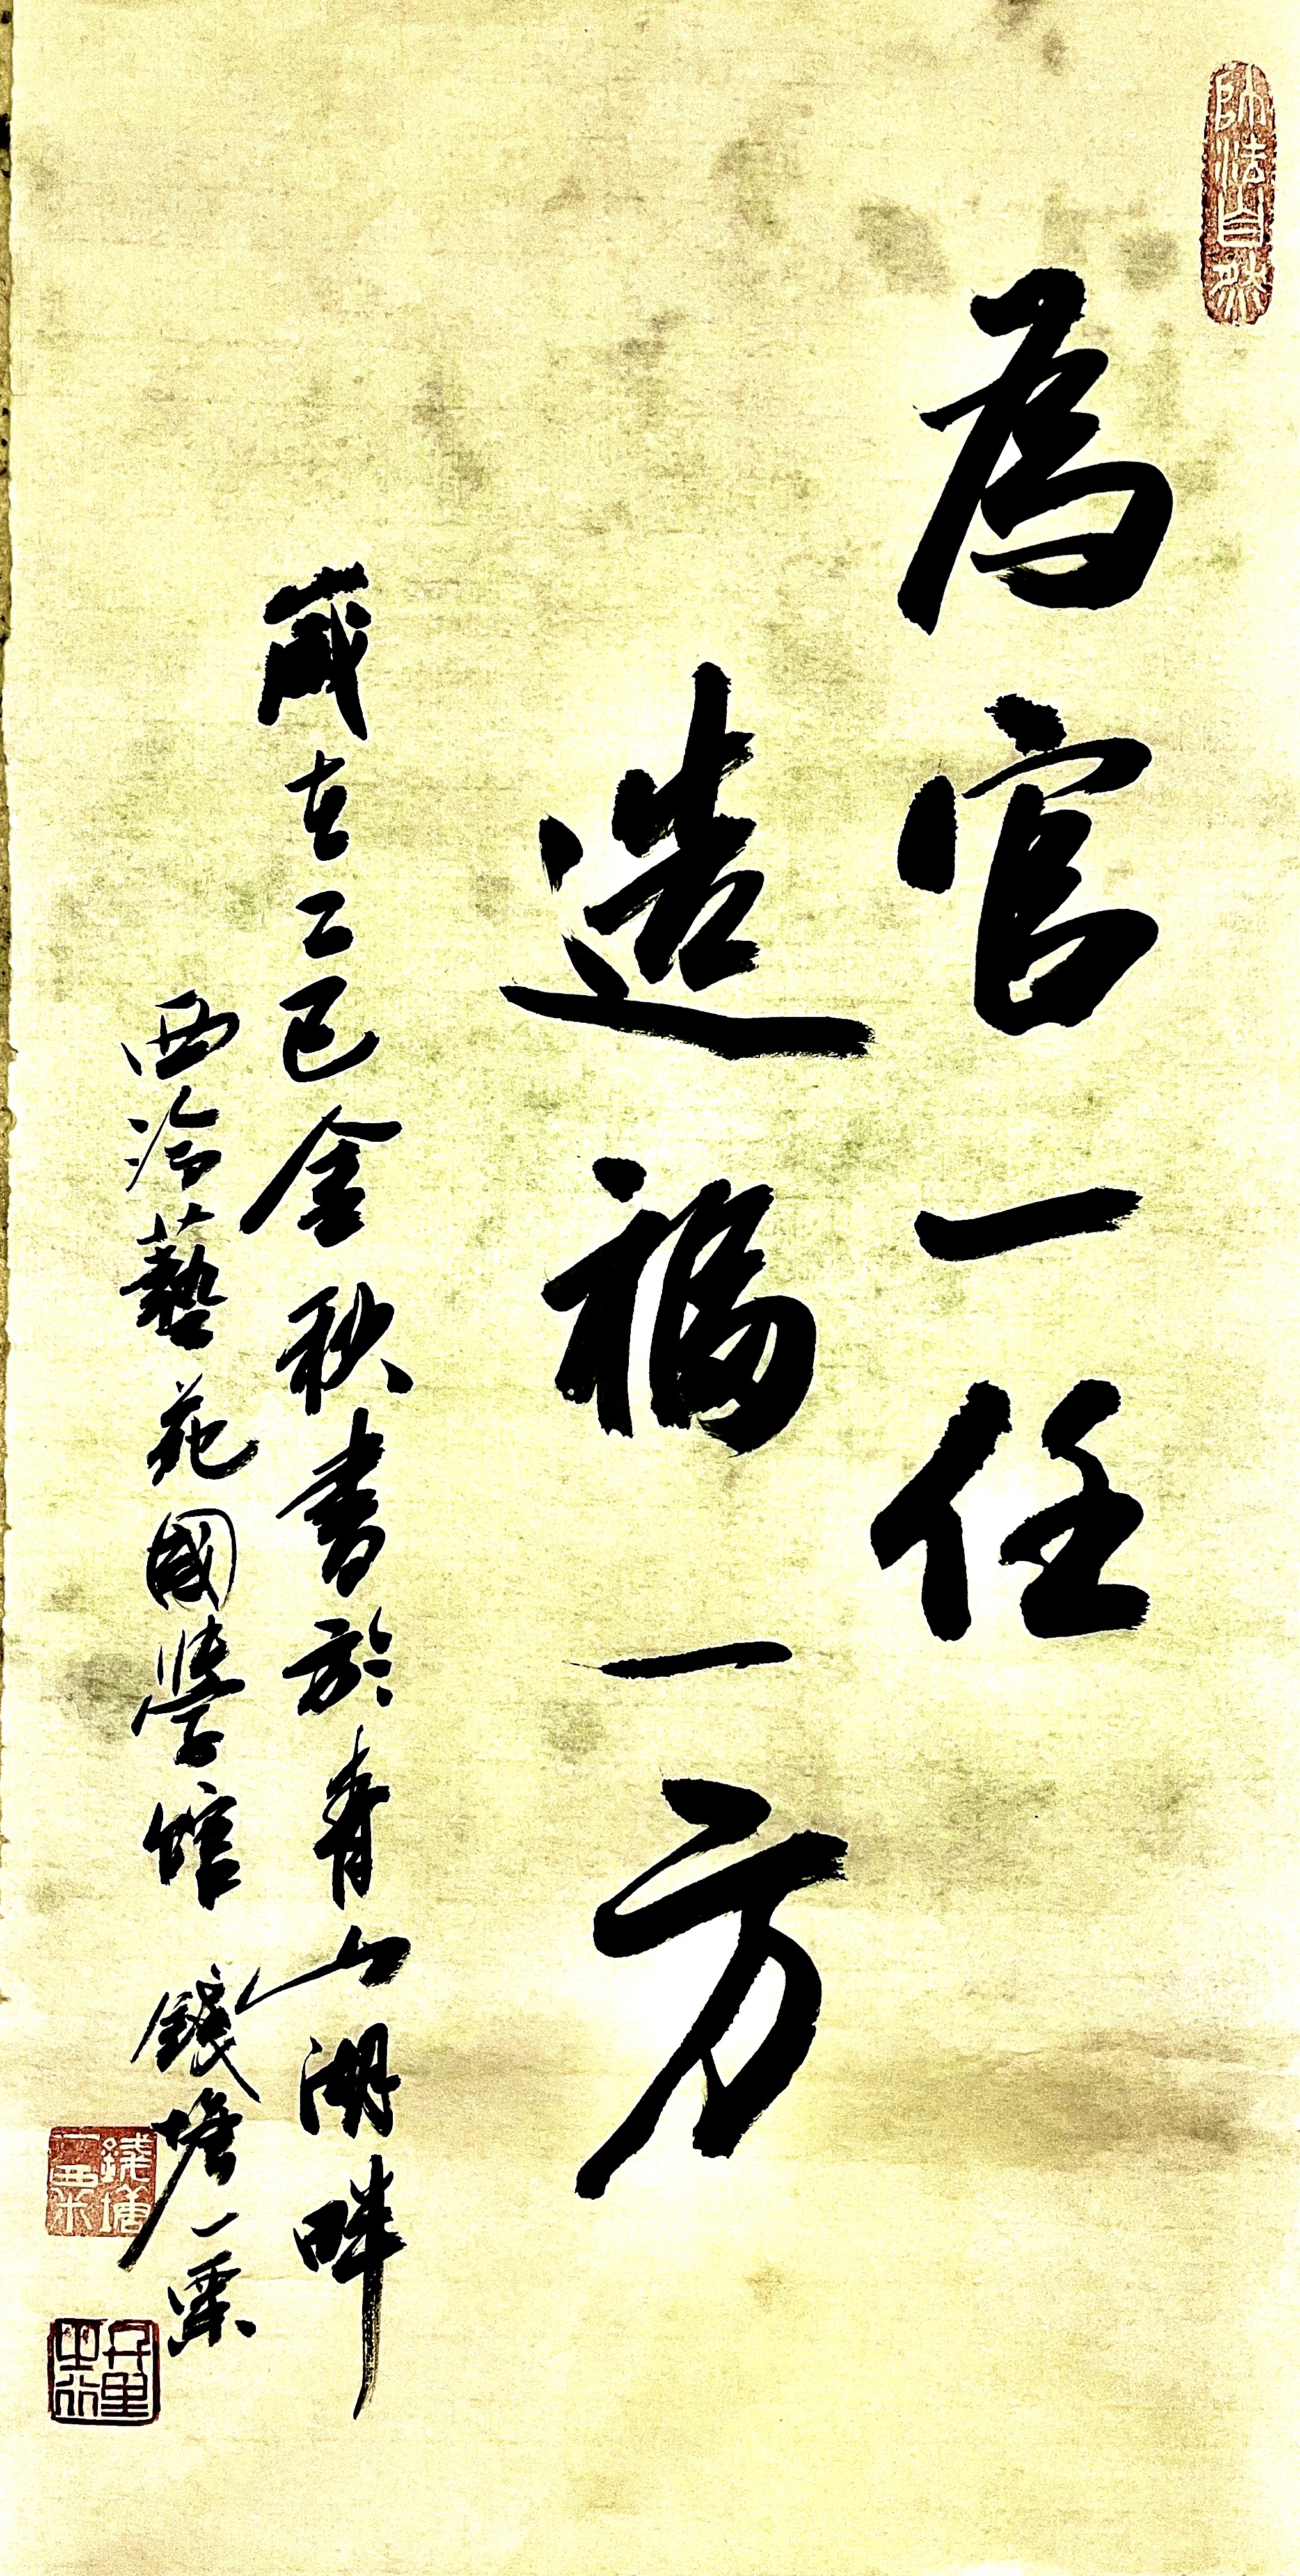 師法自然
為官一任
造福一方
歲在乙巳金秋書於青山湖畔
西泠藝苑國學館 錢塘一粟
錢塘一粟